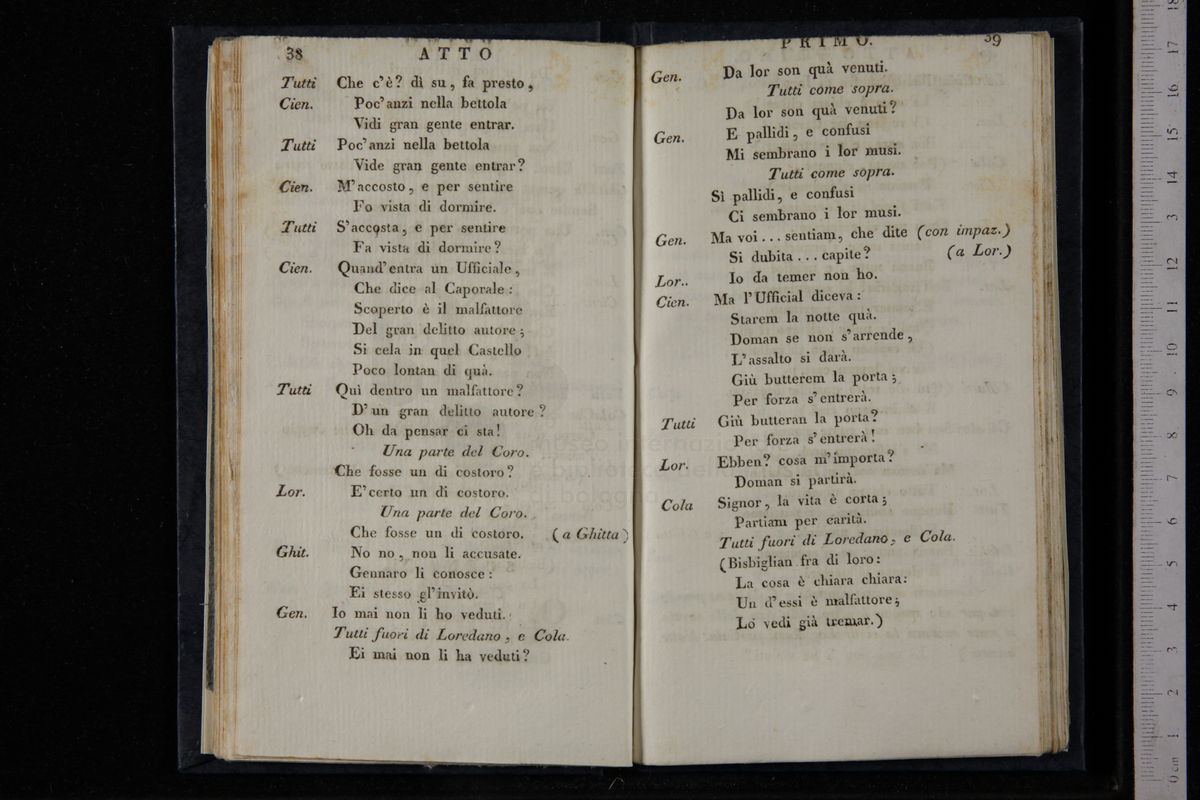 38 ATTO
Tutti Che c'è? dì su, fa presto,
Cien. Poc'anzi nella bettola
Vidi gran gente entrar.
Tutti Poc'anzi nella bettola
Vide gran gente entrar?
Cien. M'accosto, e per sentire
Fo vista di dormire.
Tutti S'accosta, e per sentire
Fa vista di dormire?
Cien. Quand'entra un Ufficiale,
Che dice al Caporale:
Scoperto è il malfattore
Del gran delitto autore;
Si cela in quel Castello
Poco lontan di quà.
Tutti Quì dentro un malfattore?
D'un gran delitto autore?
Oh da pensar ci sta!
Una parte del Coro.
Che fosse un di costoro?
Lor. E' certo un di costoro.
Una parte del Coro.
Che fosse un di costoro. (a Ghitta)
Ghit. No no, non li accusate.
Gennaro li conosce:
Ei stesso gl'invitò.
Gen. Io mai non li ho veduti.
Tutti fuori di Loredano, e Cola.
Ei mai non li ha veduti?
PRIMO. 39
Gen. Da lor son quà venuti.
Tutti come sopra.
Da lor son quà venuti?
Gen. E pallidi, e confusi
Mi sembrano i lor musi.
Tutti come sopra.
Sì pallidi, e confusi
Ci sembrano i lor musi.
Gen. Ma voi... sentiam, che dite (con impaz.)
Si dubita... capite? (a Lor.)
Lor.. Io da temer non ho.
Cien. Ma l'Ufficial diceva:
Starem la notte quà.
Doman se non s'arrende,
L'assalto si darà.
Giù butterem la porta;
Per forza s'entrerà.
Tutti Giù butteran la porta?
Per forza s'entrerà!
Lor. Ebben? cosa m'importa?
Doman si partirà.
Cola Signor, la vita è corta;
Partiam per carità.
Tutti fuori di Loredano, e Cola.
(Bisbiglian fra di loro:
La cosa è chiara chiara:
Un d'essi è malfattore;
Lo vedi già tremar.)
museo internazionale
e biblioteca
di bologna
0 cm 1 2 3 4 5 6 7 8 9 10 11 12 13 14 15 16 17 18